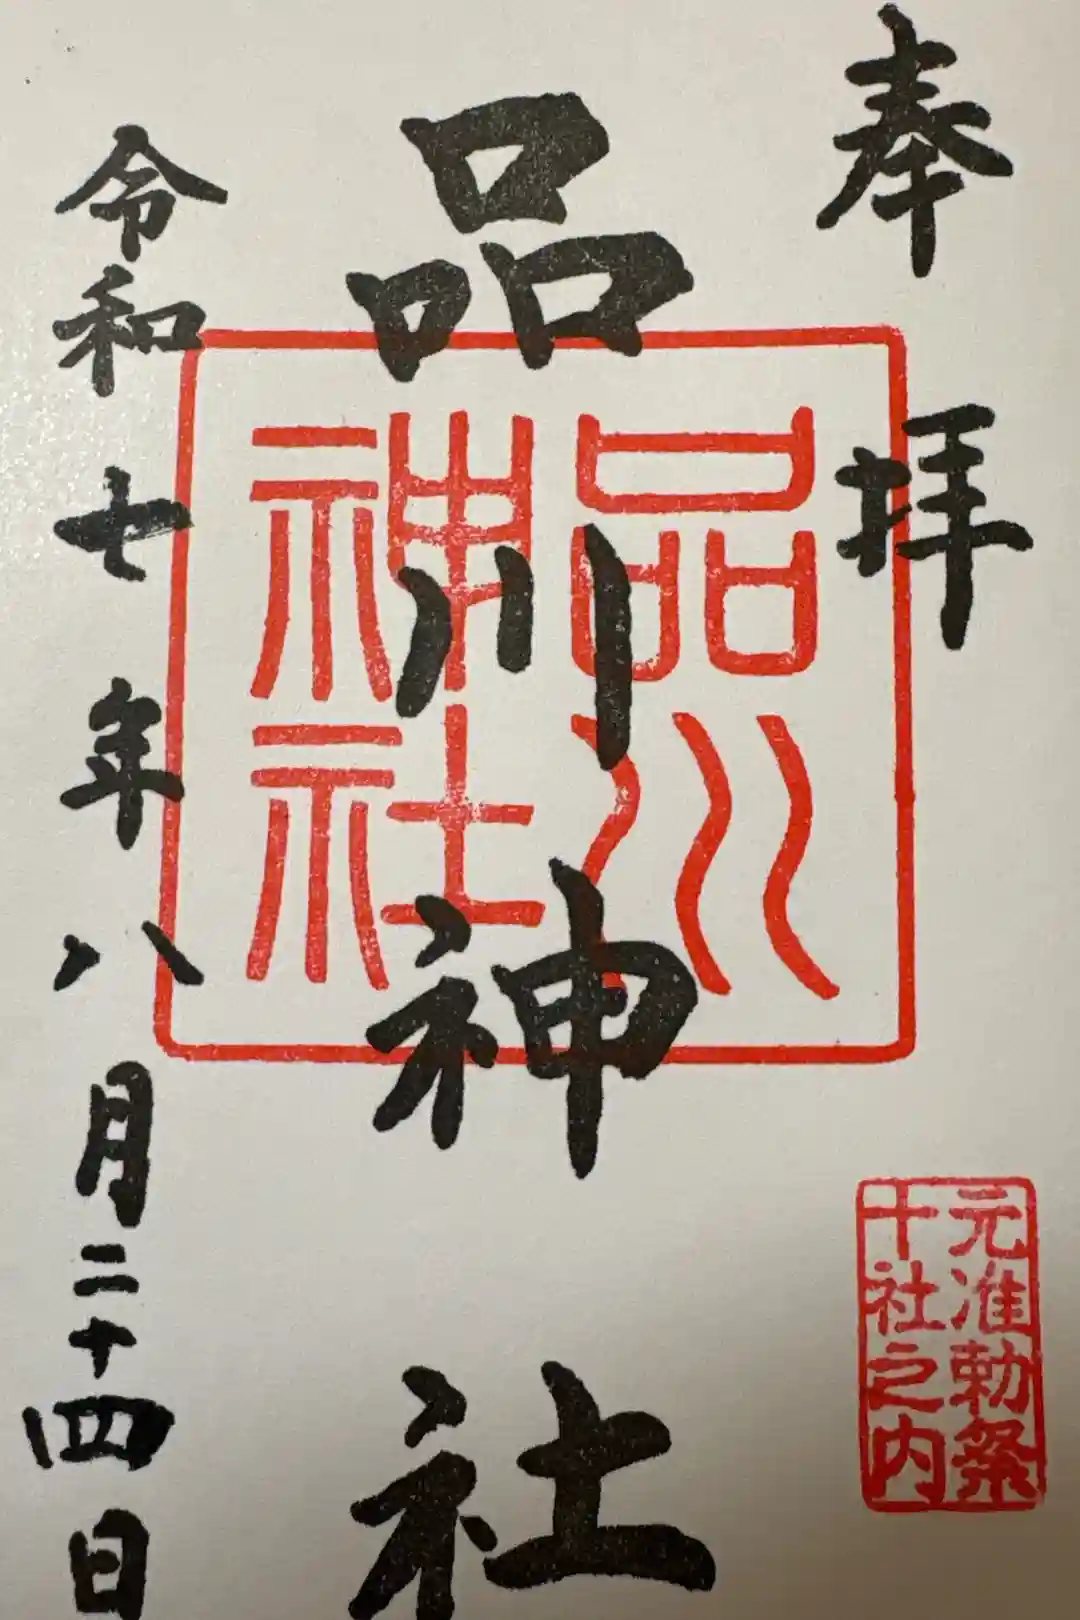 奉拝
品川神社
品川
神社
令和七年八月二十四日
元准勅祭
十社之内